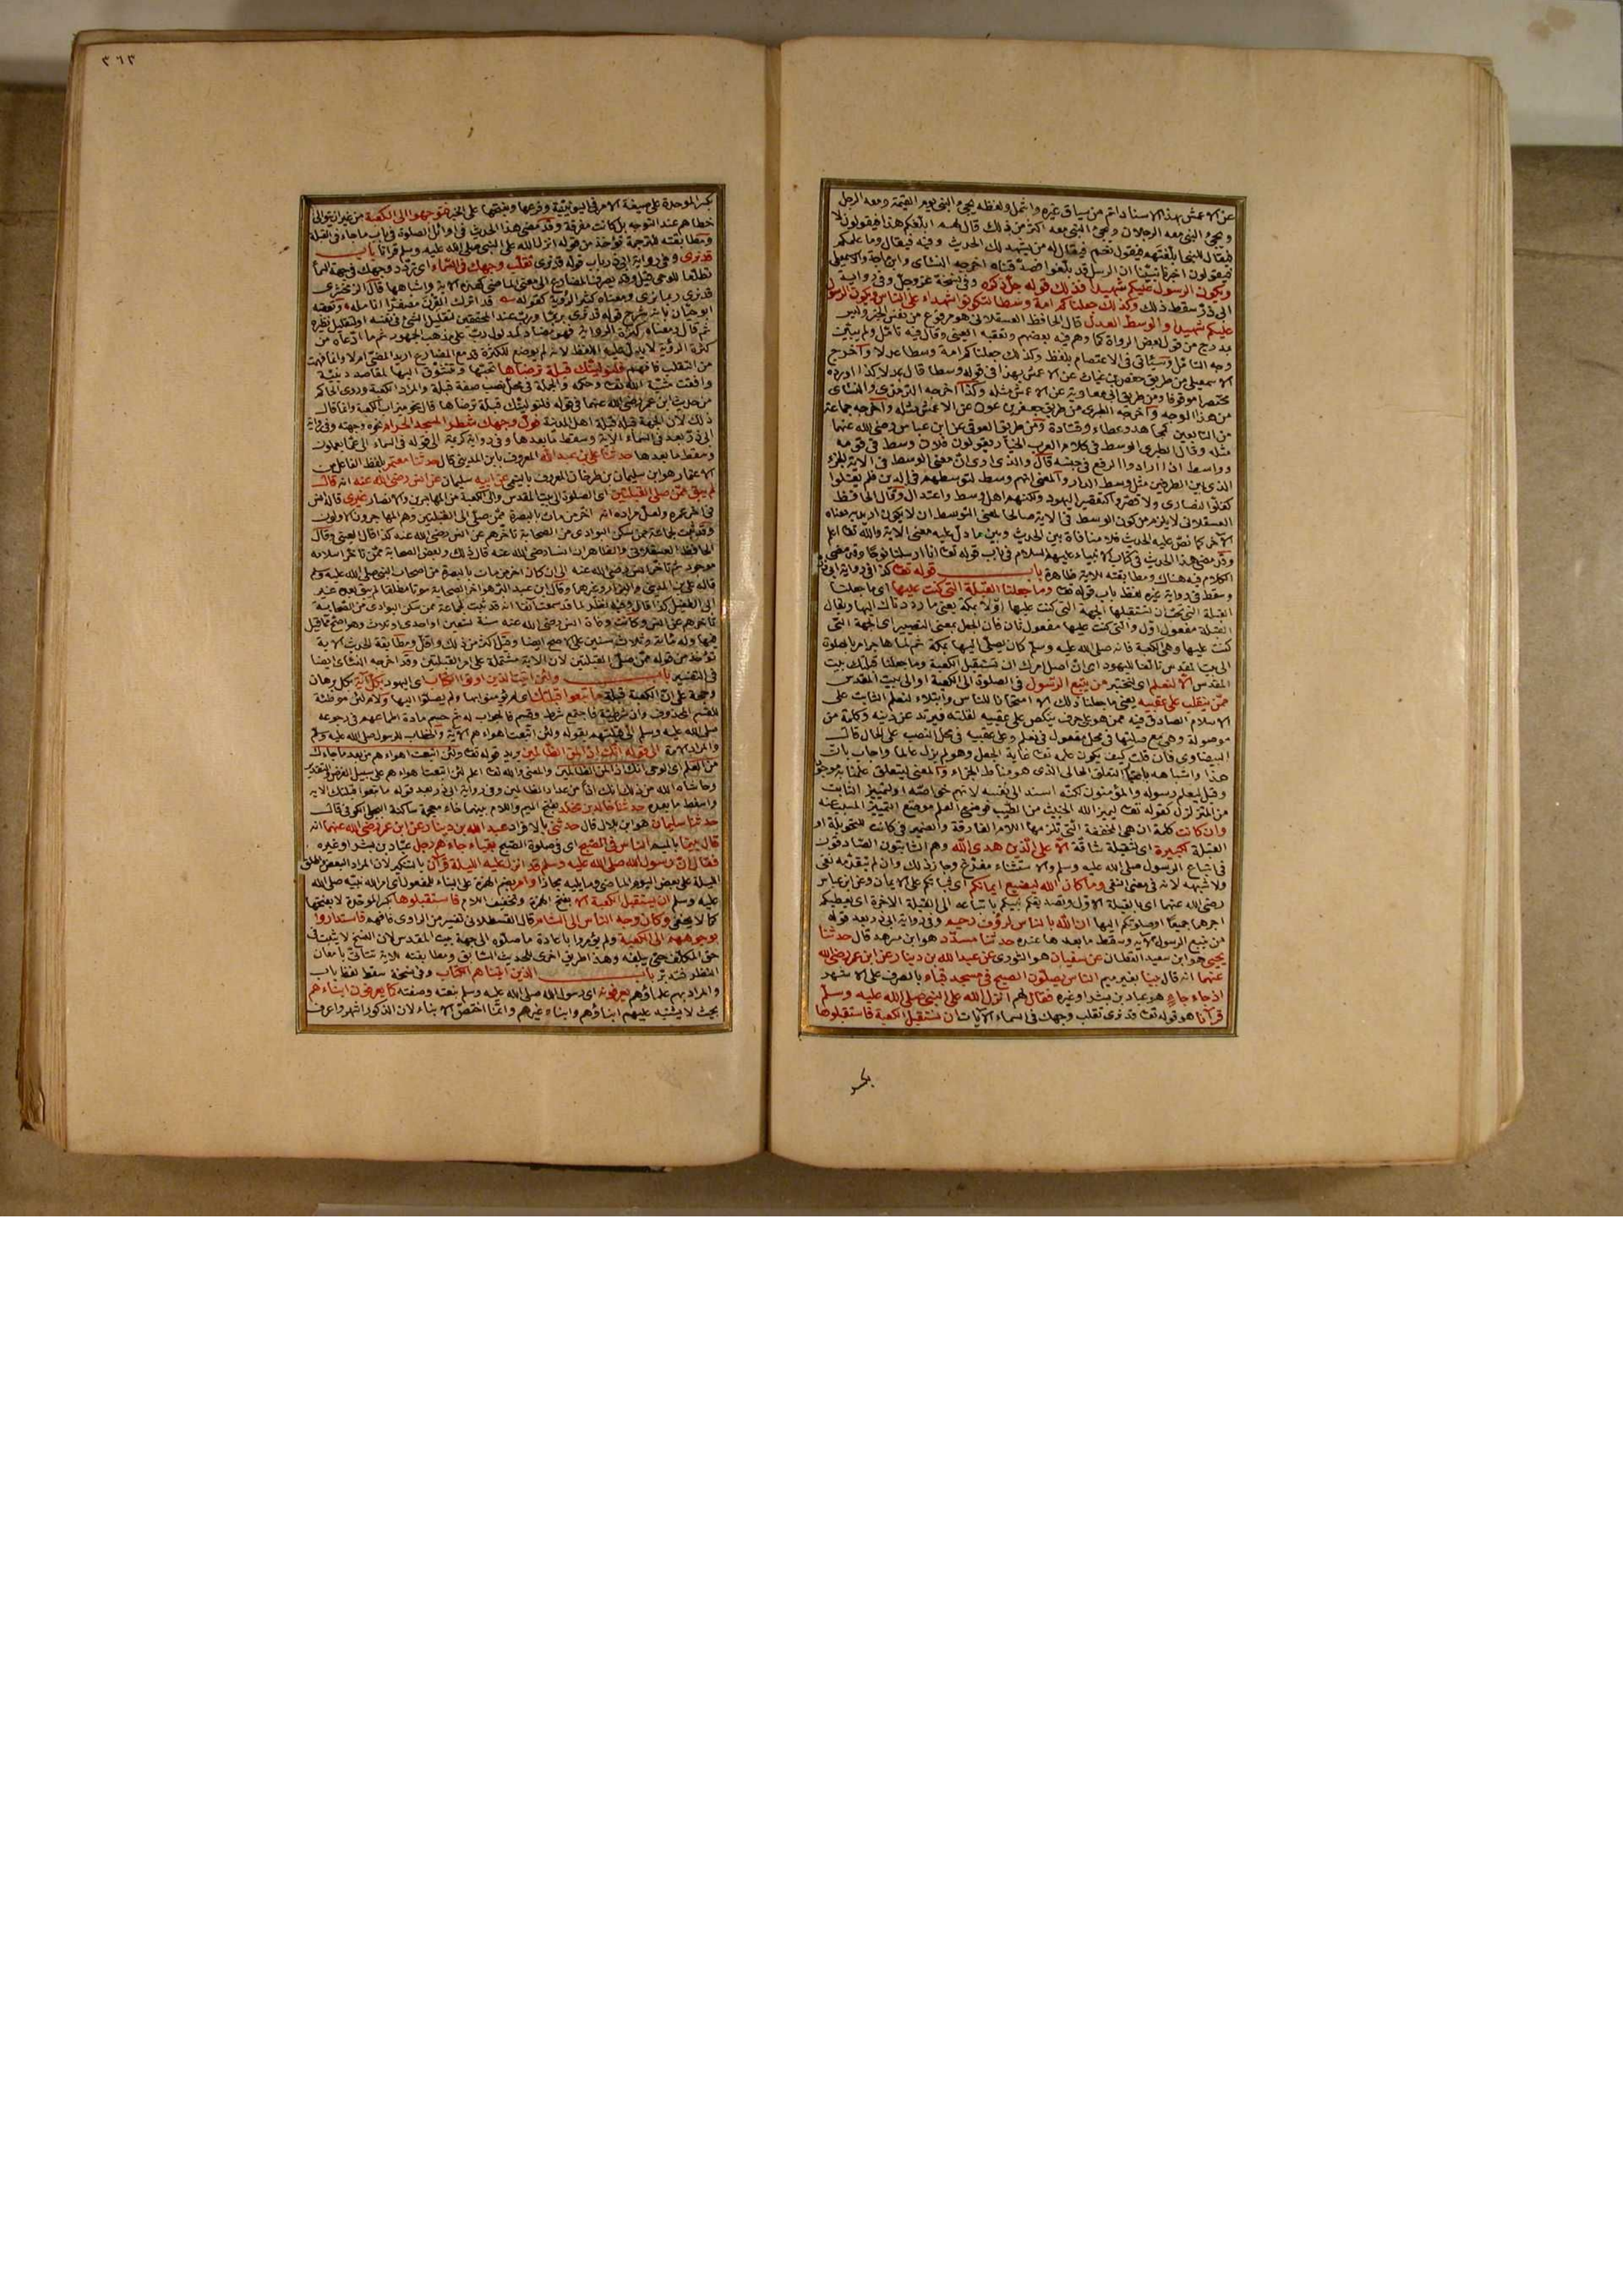 عن الاعمش بهذا الاسناد اتم من سياق غيره واشمل ولفظه يجئ النبى يوم القيمة ومعه الرجل
ويجئ النبى ومعه الرجلان ويجئ النبى معه اكثر من ذلك قال فيقال لهم ابلغكم هذا فيقولون لا
فيقال للنبى ابلغتهم فيقول نعم فيقال له من يشهد لك الحديث وفيه فيقال وما علمكم
فيقولون اخبرنا نبينا ان الرسل قد بلغوا فصدقناه اخرجه النسائى وابن ماجة والاسمعيلى
ويكون الرسول عليكم شهيدا فذلك قوله جل ذكره وفى نسخة عز وجل وفى رواية
ابى ذر سقط ذلك وكذلك جعلناكم امة وسطا لتكونوا شهداء على الناس ويكون الرسول
عليكم شهيدا والوسط العدل قال الحافظ العسقلانى هو مرفوع من نفس الخبر وليس
بمدرج من قول بعض الرواة كما وهم فيه بعضهم وتعقبه العينى وقال فيه تأمل ولم يبين
وجه التأمل وسيأتى فى الاعتصام بلفظ وكذلك جعلناكم امة وسطا عدلا واخرج
الاسمعيلى من طريق حفص بن غياث عن الاعمش بهذا فى قوله وسطا قال عدلا كذا اورده
مختصرا موقوفا ومن طريق ابى معاوية عن الاعمش مثله وكذا اخرجه الترمذى والنسائى
من هذا الوجه واخرجه الطبرى من طريق جعفر بن عون عن الاعمش مثله واخرجه جماعة
من التابعين كمجاهد وعطاء وقتادة ومن طريق العوفى عن ابن عباس رضى الله عنهما
مثله وقال الطبرى الوسط فى كلام العرب الخيار يقولون فلان وسط فى قومه
وواسط اذا ارادوا الرفع فى حسبه قال والذى ارى ان معنى الوسط فى الاية الجزء
الذى بين الطرفين مثل وسط الدار والمعنى انهم وسط لتوسطهم فى الدين فلم يغلوا
كغلو النصارى ولا قصروا كتقصير اليهود ولكنهم اهل وسط واعتدال وقال الحافظ
العسقلانى لا يلزم من كون الوسط فى الاية صالحا لمعنى التوسط ان لا يكون اريد به معناه
الاخر كما نص عليه الحديث فلا منافاة بين الحديث وبين ما دل عليه معنى الاية والله تعا اعلم
وقد مضى هذا الحديث فى كتاب الانبياء عليهم السلام فى باب قوله تعا انا ارسلنا نوحا وقد مضى
الكلام فيه هناك ومطابقته للاية ظاهرة باب قوله تعا كذا فى رواية ابى ذر
وسقط فى رواية غيره لفظ باب قوله تعا وما جعلنا القبلة التى كنت عليها اى ما جعلنا
القبلة التى تحب ان تستقبلها الجهة التى كنت عليها اولا بمكة يعنى ما رددناك اليها ويقال
القبلة مفعول اول والتى كنت عليها مفعول ثان فان الجعل بمعنى التصيير اى الجهة التى
كنت عليها وهى الكعبة فانه صلى الله عليه وسلم كان يصلى اليها بمكة ثم لما هاجر امر بالصلوة
الى بيت المقدس تألفا لليهود اى ان اصل امرك ان تستقبل الكعبة وما جعلنا قبلتك بيت
المقدس الا لنعلم اى لنختبر من يتبع الرسول فى الصلوة الى الكعبة او الى بيت المقدس
ممن ينقلب على عقبيه يعنى ما جعلنا ذلك الا امتحانا للناس وابتلاء لنعلم الثابت على
الاسلام الصادق فيه ممن هو على حرف ينكص على عقبيه لقلته فيرتد عن دينه وكلمة من
موصولة وهى مع صلتها فى محل مفعول فى لنعلم وعلى عقبيه فى محل النصب على الحال قال
البيضاوى فان قلت كيف يكون علمه تعا غاية الجعل وهو لم يزل عالما واجاب بان
هذا واشباهه باعتبار التعلق الحالى الذى هو مناط الجزاء والمعنى ليتعلق علمنا به موجودا
وقيل ليعلم رسوله والمؤمنون لكنه اسند الى نفسه لانهم خواصه او لتمييز الثابت
من المتزلزل كقوله تعا ليميز الله الخبيث من الطيب فوضع العلم موضع التمييز المسبب عنه
وان كانت كلمة ان هى المخففة التى تلزمها اللام الفارقة والضمير فى كانت للتحويلة او
القبلة لكبيرة اى لثقيلة شاقة الا على الذين هدى الله وهم الثابتون الصادقون
فى اتباع الرسول صلى الله عليه وسلم والاستثناء مفرغ وجاز ذلك وان لم يتقدمه نفى
ولا شبهه لانه فى معنى النفى وما كان الله ليضيع ايمانكم اى ثباتكم على الايمان وعن ابن عباس
رضى الله عنهما اى بالقبلة الاولى وتصديقكم نبيكم باتباعه الى القبلة الاخرة اى ليعطيكم
اجرهما جميعا او صلوتكم اليها ان الله بالناس لرؤف رحيم وفى رواية ابى ذر بعد قوله
من يتبع الرسول الاية وسقط ما بعدها عنده حدثنا مسدد هو ابن مسرهد قال حدثنا
يحيى هو ابن سعيد القطان عن سفيان هو الثورى عن عبد الله بن دينار عن ابن عمر رضى الله
عنهما انه قال بينا بغير ميم الناس يصلون الصبح فى مسجد قباء بالصرف على الاشهر
اذ جاء جاء هو عباد بن بشر او غيره فقال لهم انزل الله على النبى صلى الله عليه وسلم
قرآنا هو قوله تعا قد نرى تقلب وجهك فى السماء الآيات ان نستقبل الكعبة فاستقبلوها
بكسر
٣٦٣
بكسر الموحدة على صيغة الامر فى اليونينية وفرعها وبفتحها على الخبر فتوجهوا الى الكعبة من غير ان يتوالى
خطاهم عند التوجه بل كانت مفرقة وقد مضى هذا الحديث فى اوائل الصلوة فى باب ما جاء فى القبلة
ومطابقته للترجمة تؤخذ من قوله انزل الله على النبى صلى الله عليه وسلم قرآنا باب
قد نرى وفى رواية ابى ذر باب قوله قد نرى تقلب وجهك فى السماء اى تردد وجهك فى جهة السماء
تطلعا للوحى قيل وقد يصرف المضارع الى معنى الماضى كهذه الاية واشباهها قال الزمخشرى
قد نرى ربما نرى ومعناه كثرة الرؤية كقوله قد اترك القرن مصفرا انامله وتعقبه
ابو حيان بانه شرح قوله قد نرى بربما ورب عند المحققين لتقليل الشئ فى نفسه او لتقليل نظيره
ثم قال ومعناه كثرة الرؤية فهو مضاد لمدلول رب على مذهب الجمهور ثم ما ادعاه من
كثرة الرؤية لا يدل عليه اللفظ لانه لم يوضع للكثرة قد مع المضارع اريد به المضى ام لا وانما فهمت
من التقلب فافهم فلنولينك قبلة ترضاها تحبها وتتشوق اليها لمقاصد دينية
وافقت مشية الله تعا وحكمه والجملة فى محل نصب صفة قبلة والمراد الكعبة وروى الحاكم
من حديث ابن عمر رضى الله عنهما فى قوله فلنولينك قبلة ترضاها قال نحو ميزاب الكعبة وانما قال
ذلك لان الجهة قبلة اهل المدينة فول وجهك شطر المسجد الحرام نحوه وجهته وفى رواية
ابى ذر بعد فى السماء الاية وسقط ما بعدها وفى رواية كريمة الى قوله فى السماء الى عما يعملون
وسقط ما بعدها حدثنا على بن عبد الله المعروف بابن المدينى قال حدثنا معتمر بلفظ الفاعل من
الاعتمار هو ابن سليمان بن طرخان المعروف بالتيمى عن ابيه سليمان عن انس رضى الله عنه انه قال
لم يبق ممن صلى القبلتين اى الصلوة الى بيت المقدس والى الكعبة من المهاجرين والانصار غيرى قال انس
فى اخر عمره ولعل مراده انه اخر من مات بالبصرة ممن صلى الى القبلتين وهم المهاجرون الاولون
وقد ثبت لجماعة ممن سكن البوادى من الصحابة تأخرهم عن انس رضى الله عنه كذا قال العينى وقال
الحافظ العسقلانى والظاهر ان انسا رضى الله عنه قال ذلك وبعض الصحابة ممن تأخر اسلامه
موجود ثم تأخر انس رضى الله عنه الى ان كان اخر من مات بالبصرة من اصحاب النبى صلى الله عليه وسلم
قاله على بن المدينى والبزار وغيرهما وقال ابن عبد البر هو اخر الصحابة موتا مطلقا لم يبق بعده غير
ابى الطفيل كذا قال وفيه نظر لما قد سمعت آنفا انه قد ثبت لجماعة ممن سكن البوادى من الصحابة
تأخرهم عن انس وكانت وفاة انس رضى الله عنه سنة تسعين او احدى او ثلاث وهو اصح ما قيل
فيها وله مائة وثلاث سنين على الاصح ايضا وقيل اكثر من ذلك واقل ومطابقة الحديث للاية
تؤخذ من قوله ممن صلى القبلتين لان الاية مشتملة على امر القبلتين وقد اخرجه النسائى ايضا
فى التفسير باب ولئن اتيت الذين اوتوا الكتاب اى اليهود بكل آية بكل برهان
وحجة على ان الكعبة قبلة ما تبعوا قبلتك اى لم يؤمنوا بها ولم يصلوا اليها ولام لئن موطئة
للقسم المحذوف وان شرطية فاجتمع شرط وقسم فالجواب له ثم حسم مادة اطماعهم فى رجوعه
صلى الله عليه وسلم الى قبلتهم بقوله ولئن اتبعت اهواءهم الاية والخطاب للرسول صلى الله عليه وسلم
والمراد الامة الى قوله انك اذا لمن الظالمين يريد قوله تعا ولئن اتبعت اهواءهم من بعد ما جاءك
من العلم اى الوحى انك اذا لمن الظالمين والمعنى والله تعا اعلم لئن اتبعت اهواءهم على سبيل الفرض والتقدير
وحاشاه الله من ذلك انك اذا من عداد الظالمين وفى رواية ابى ذر بعد قوله ما تبعوا قبلتك الاية
واسقط ما بعده حدثنا خالد بن مخلد بفتح الميم واللام بينهما خاء معجمة ساكنة البجلى الكوفى قال
حدثنا سليمان هو ابن بلال قال حدثنى بالافراد عبد الله بن دينار عن ابن عمر رضى الله عنهما انه
قال بينما بالميم الناس فى الصبح اى فى صلوة الصبح بقباء جاءهم رجل عباد بن بشر او غيره
فقال ان رسول الله صلى الله عليه وسلم قد انزل عليه الليلة قرآن بالتنكير لان المراد البعض واطلق
الليلة على بعض اليوم الماضى وما يليه مجازا وامر بضم الهمزة على البناء للمفعول اى امر الله نبيه صلى الله
عليه وسلم ان يستقبل الكعبة الا بفتح الهمزة وتخفيف اللام فاستقبلوها بكسر الموحدة لا بفتحها
كما لا يخفى وكان وجه الناس الى الشام قال القسطلانى تفسير من الراوى فافهم فاستداروا
بوجوههم الى الكعبة ولم يؤمروا باعادة ما صلوه الى جهة بيت المقدس لان النسخ لا يثبت فى
حق المكلف حتى يبلغه وهذا طريق اخرى للحديث السابق ومطابقته للاية تتأتى بامعان
النظر فتدبر باب الذين آتيناهم الكتاب وفى نسخة سقط لفظ باب
والمراد بهم علماؤهم يعرفونه اى رسول الله صلى الله عليه وسلم بنعته وصفته كما يعرفون ابناءهم
بحيث لا يشتبه عليهم ابناؤهم وابناء غيرهم وانما اختص الابناء لان الذكور اشهر واعرف